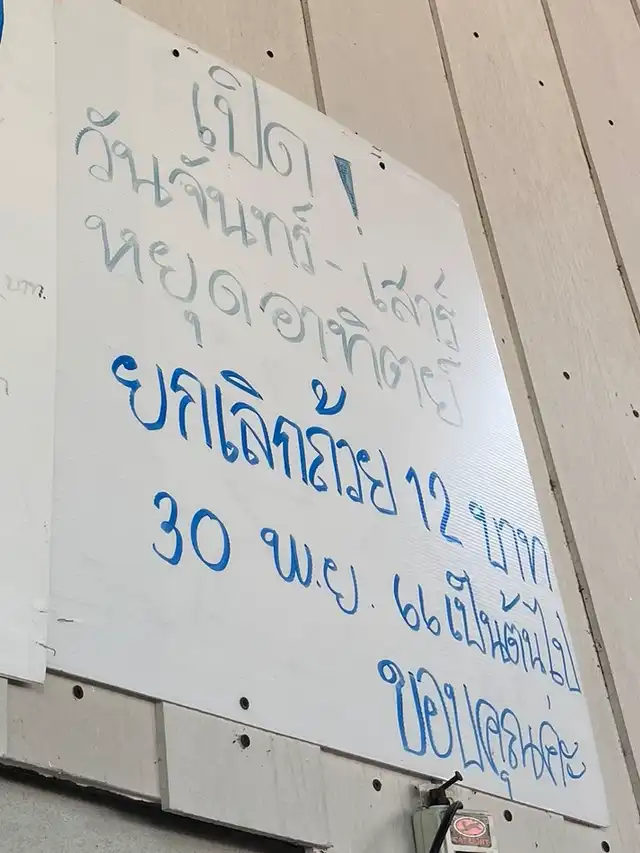 เปิด !
วันจันทร์ - เสาร์
หยุดอาทิตย์
ยกเลิกถ้วย 12 บาท
30 พ.ย. 66 เป็นต้นไป
ขอบคุณค่ะ
บาท.